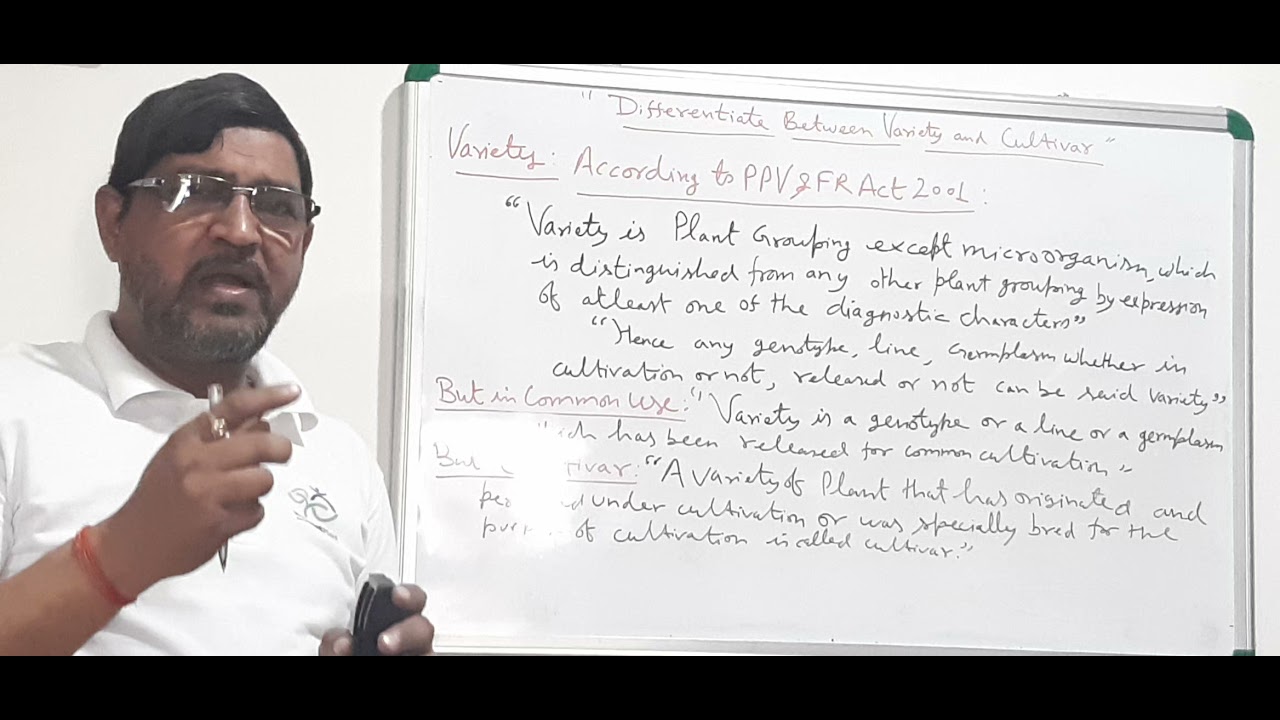 " Differentiate Between Variety and Cultivar "
Variety: According to PPV & FR Act 2001:
"Variety is Plant Grouping except microorganism, which
is distinguished from any other plant grouping by expression
of atleast one of the diagnostic characters"
"Hence any genotype, line, Germplasm whether in
cultivation or not, released or not can be said variety"
But in Common Use: "Variety is a genotype or a line or a germplasm
which has been released for common cultivation"
But tivar: "A variety of Plant that has originated and
under cultivation or was specially bred for the
of cultivation is called cultivar."